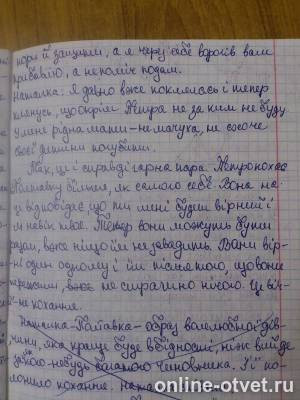 кори й защити, а я через себе ворогів вам
прибавлю, а не поміч подам.
Наталка. Я давно вже поклялась і тепер
клянусь, що крім Петра не за ким не буду
у мене рідна мати – не мачуха, не схоче
своєї дитини погубити.
Так, це і справді гарна пара. Петро кохає
Полтавку більш, як самого себе. Вона на
це відповідає що ти мені будеш вірний і
я навік твоя. Тепер вони можуть бути
разом, вже ніщо їм не завадить. Вони вір-
ні один одному і їм після того, що вони
пережили, вже не страшно нічого. Це віч-
не кохання.
Наталка-Полтавка – образ волелюбної дів-
чини, яка краще буде в бідності, ніж вийде за
якого-небудь багатого чиновника. Її по-
лонило кохання.
online-otvet.ru